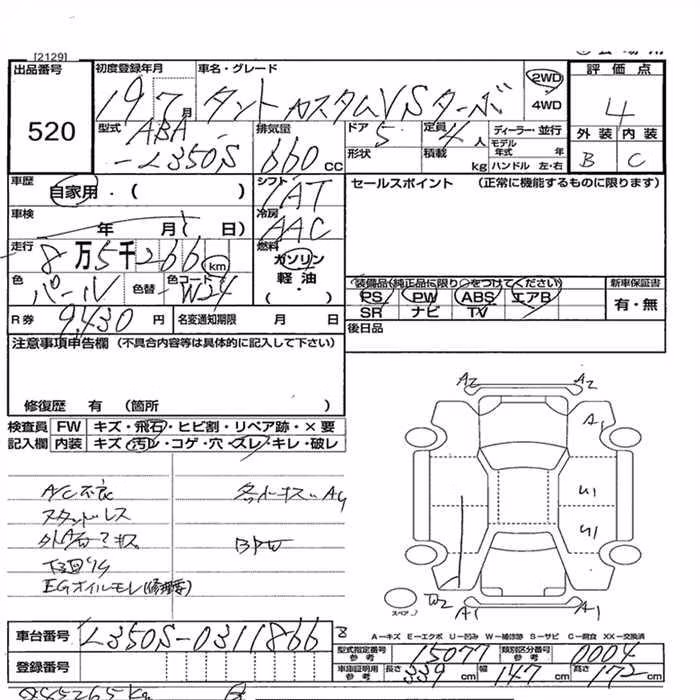 [2129]
出品番号
520
初度登録年月
19 7 月
車名・グレード
タント カスタムVSターボ
2WD
4WD
評価点
4
外装 内装
B C
型式
ABA
-L350S
排気量
660 cc
ドア 5
形状
定員 4 人
積載 kg
ディーラー・並行
モデル年式 年
ハンドル 左・右
車歴
自家用・( )
シフト
IAT
セールスポイント (正常に機能するものに限ります)
車検
年 月( 日)
冷房
AAC
走行
8万5千266 km
燃料
ガソリン
軽油・
( )
色
パール
色替
色コード
W24
装備品(純正品に限り○をつけてください)
PS PW ABS エアB
SR ナビ TV
新車保証書
有・無
R券 9,430 円
名変通知期限 月 日
後日品
注意事項申告欄 (不具合内容等は具体的に記入して下さい)
修復歴 有 (箇所 )
検査員 FW キズ・飛石・ヒビ割・リペア跡・×要
記入欄 内装 キズ・汚レ・コゲ・穴・スレ・キレ・破レ
A/C不良
スタッドレス
EGオイルモレ(修理要)
BPW
A2 A2
A1
U1
U1
W2
A1 A1
スペア
A−キズ E−エクボ U−凹み W−補修跡 S−サビ C−腐食 XX−交換済
車台番号 L350S-0311866
8
型式指定番号 参考 15077
類別区分番号 参考 0004
登録番号
車庫証明用 参考 長さ 339 cm 幅 147 cm 高さ 172 cm